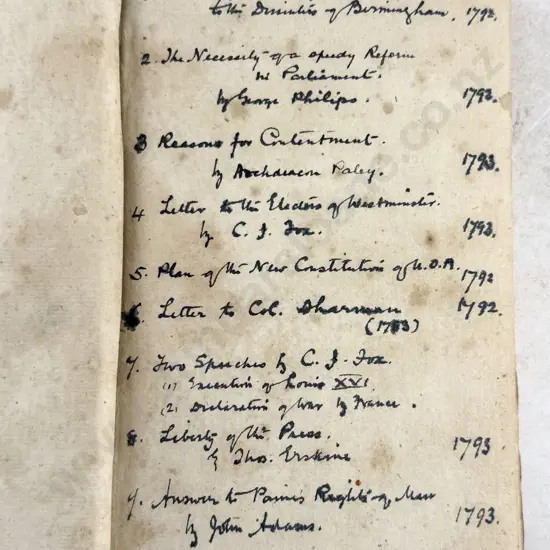 to the Dissenters of Birmingham. 1792.
2. The Necessity of a speedy Reform
in Parliament.
by George Philips. 1793.
3 Reasons for Contentment.
by Archdeacon Paley. 1793.
4 Letter to the Electors of Westminster.
by C. J. Fox. 1793.
5. Plan of the New Constitution of U.S.A. 1792
6. Letter to Col. Sharman 1792.
(1783)
7. Two Speeches by C. J. Fox.
(1) Execution of Louis XVI.
(2) Declaration of War by France.
8. Liberty of the Press.
by Thos. Erskine 1793
9. Answer to Paine's Rights of Man
by John Adams. 1793.